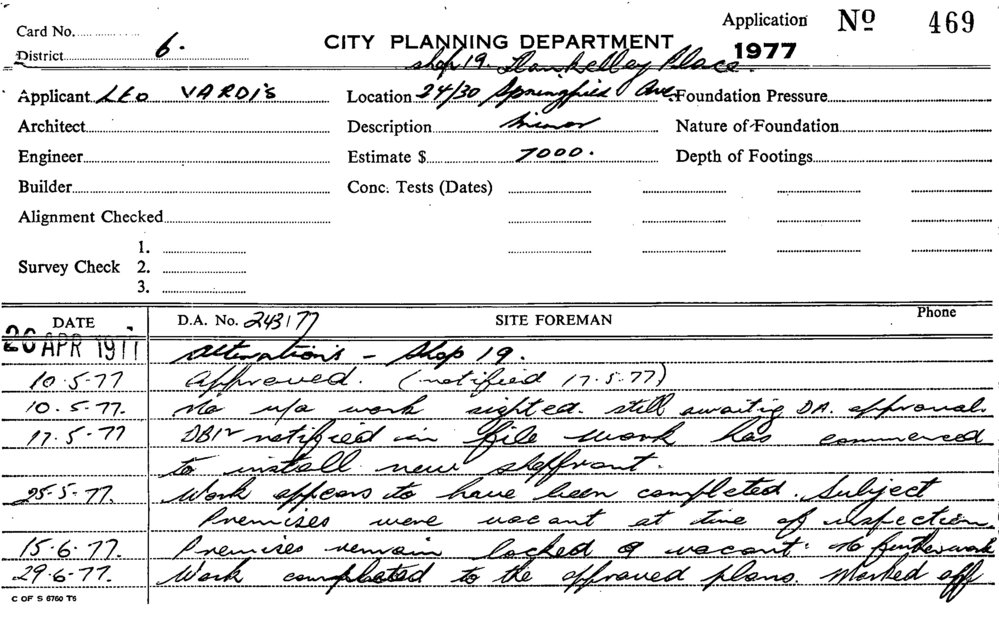 Card No.
District 6.
CITY PLANNING DEPARTMENT
Application Nº 469
1977
shop 19. Llankelley Place.
Applicant LEO VARDIS
Location 24/30 Springfield Ave.
Foundation Pressure
Architect
Description Minor
Nature of Foundation
Engineer
Estimate $ 7000.
Depth of Footings
Builder
Conc. Tests (Dates)
Alignment Checked
Survey Check 1.
2.
3.
DATE D.A. No. 243177 SITE FOREMAN Phone
26 APR 1977 alterations - Shop 19.
10.5.77 Approved. (notified 17.5.77)
10.5.77. No u/a work sighted. still awaiting DA. approval.
17.5.77 notified in file work has commenced
to install new shopfront.
25-5-77. Work appears to have been completed. Subject
Premises were vacant at time of inspection
15.6.77. Premises remain locked & vacant. No further work
29-6-77. Work completed to the approved plans. Marked off
C OF S 6760 T5